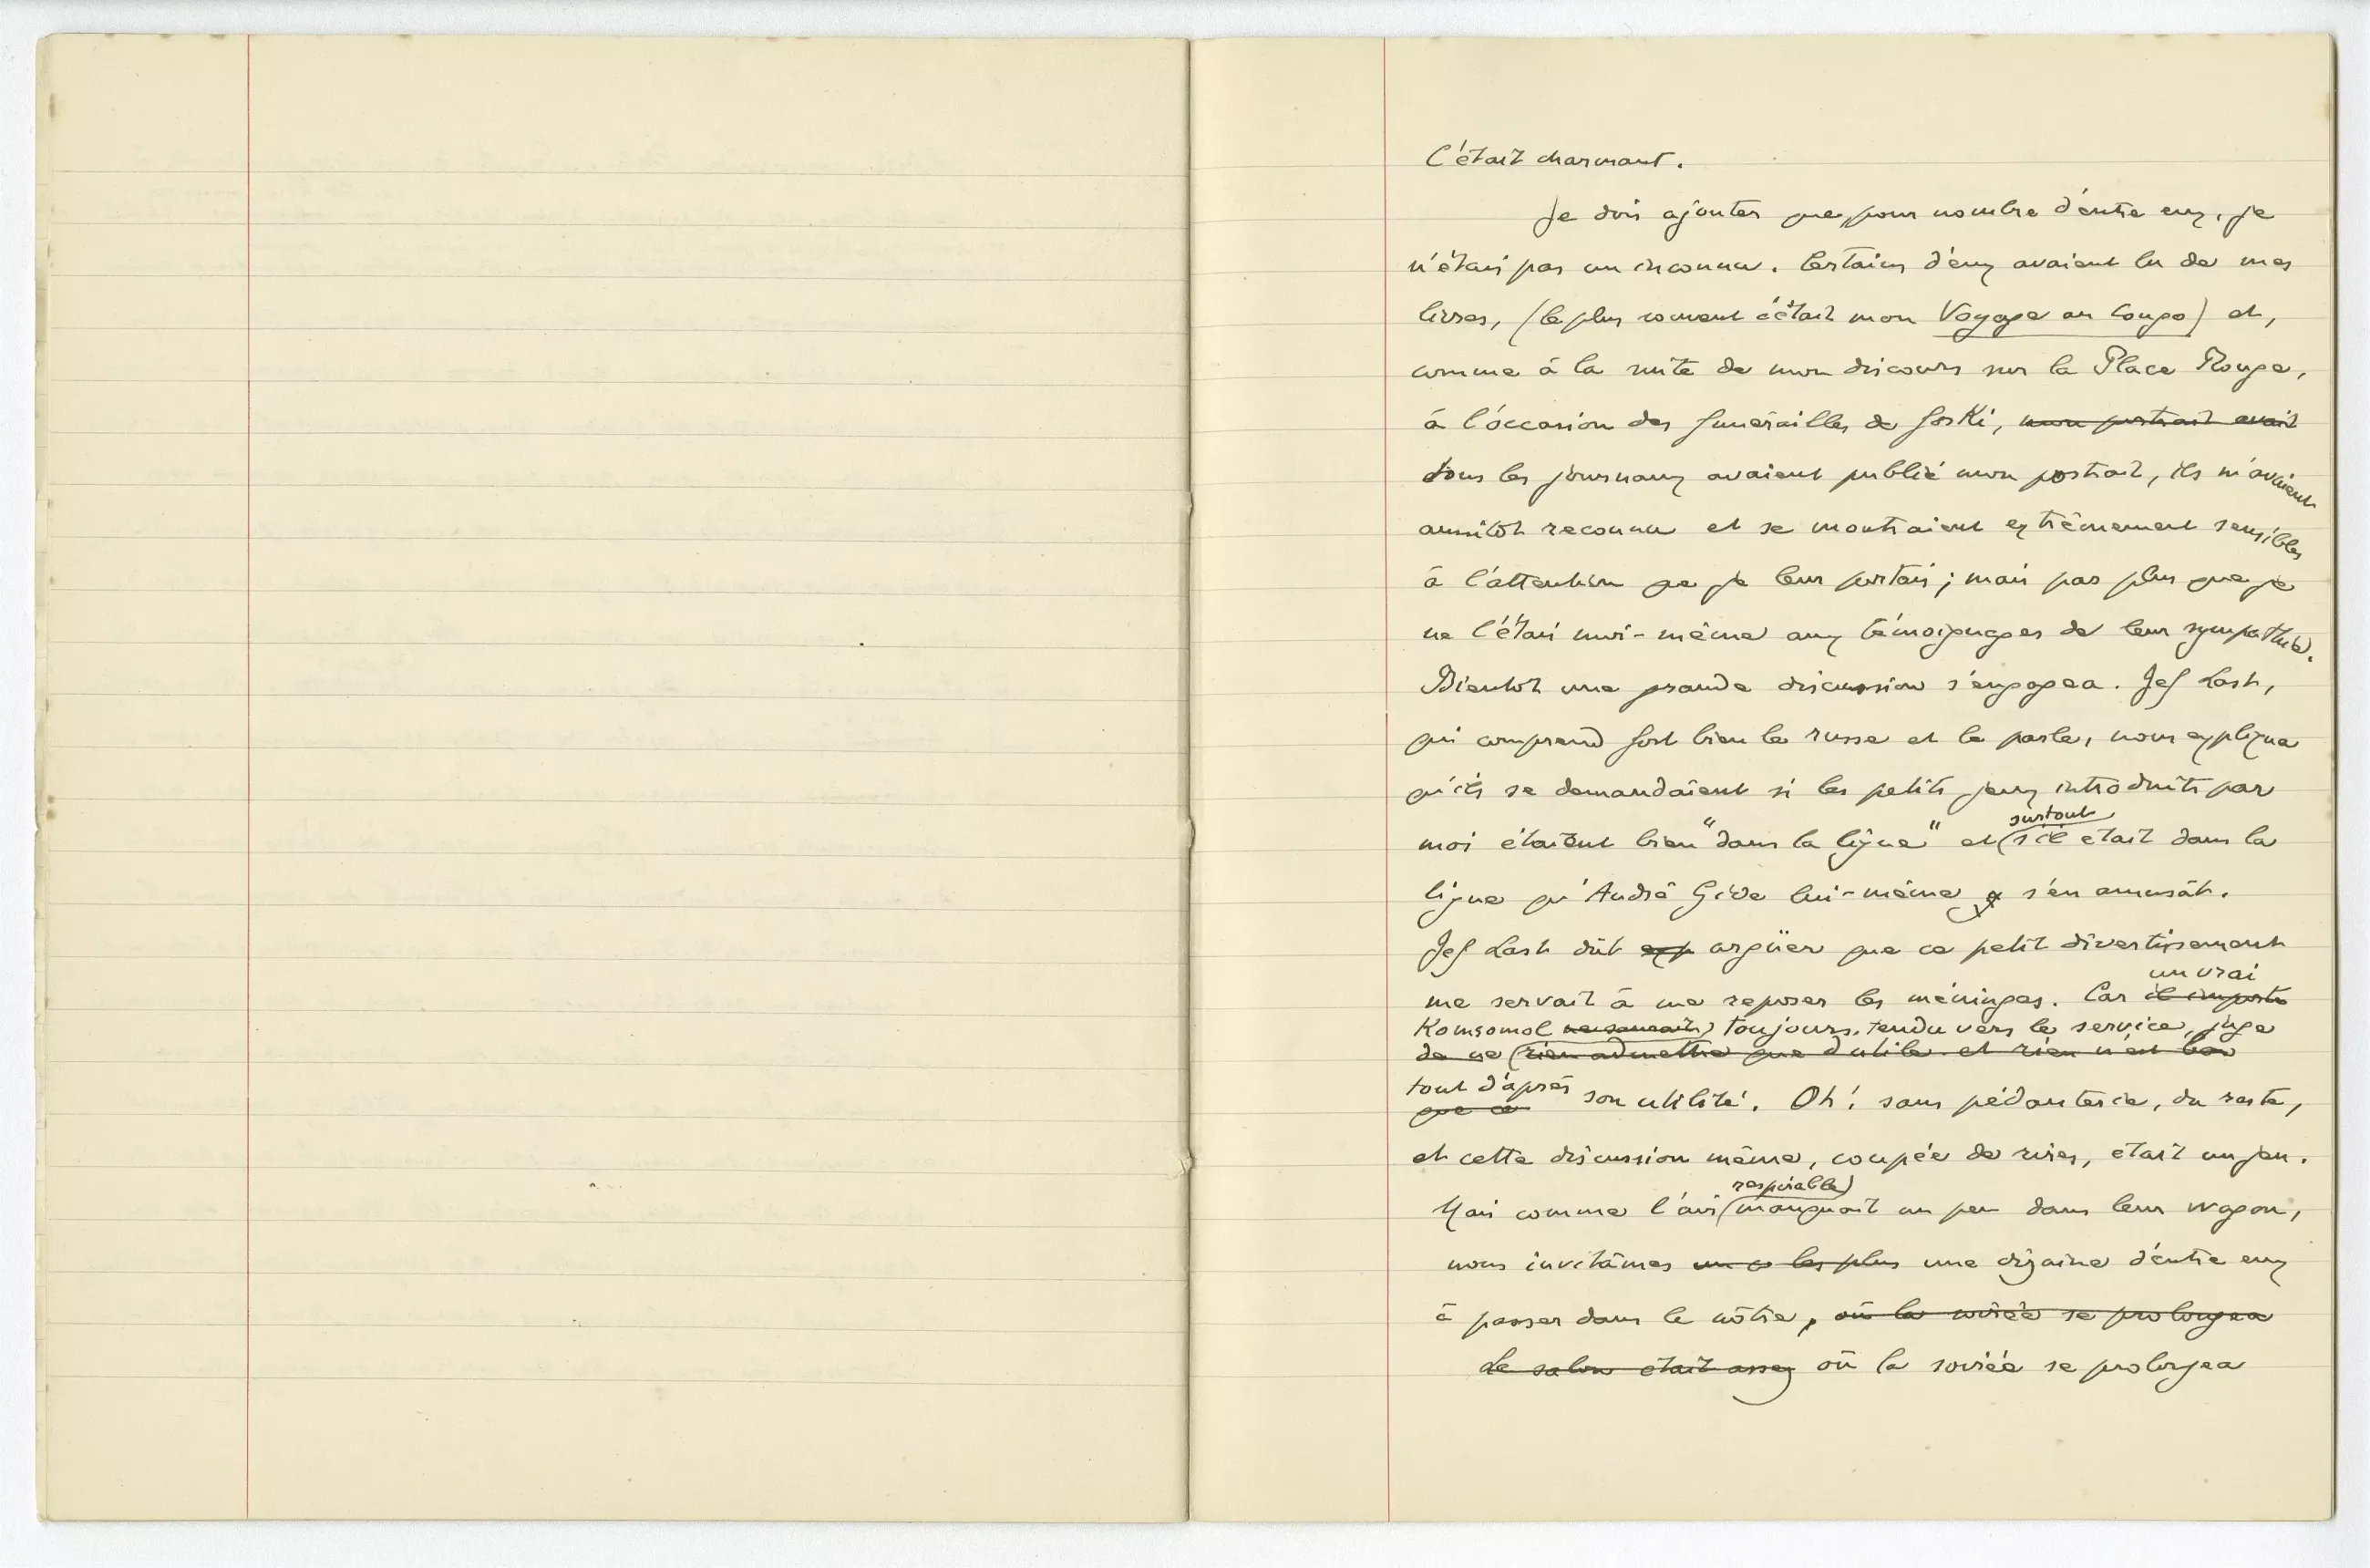 C'était charmant.
Je dois ajouter que, pour nombre d'entre eux, je
n'étais pas un inconnu. Certains d'eux avaient lu de mes
livres, (le plus souvent c'était mon Voyage au Congo) et,
comme à la suite de mon discours sur la Place Rouge,
à l'occasion des funérailles de Gorki, mon portrait avait
tous les journaux avaient publié mon portrait, ils m'avaient
aussitôt reconnu et se montraient extrêmement sensibles
à l'attention que je leur portais ; mais pas plus que je
ne l'étais moi-même aux témoignages de leur sympathie.
Bientôt une grande discussion s'engagea. Jef Last,
qui comprend fort bien le russe et le parle, nous expliqua
qu'ils se demandaient si les petits jeux introduits par
surtout
moi étaient bien "dans la ligne" et s'il était dans la
ligne qu'André Gide lui-même s'en amusât.
Jef Last dût exp argüer que ce petit divertissement
un vrai
me servait à me reposer les méninges. Car il importe
Komsomol ne saurait toujours tendu vers le service, juge
de ne rien admettre que d'utile et rien n'est bon
tout d'après
que ce son utilité. Oh ! sans pédanterie, du reste,
et cette discussion même, coupée de rires, était un jeu.
respirable
Mais comme l'air manquait un peu dans leur wagon,
nous invitâmes les plus une dizaine d'entre eux
à passer dans le nôtre, où la soirée se prolongea
Le salon était assez où la soirée se prolongea